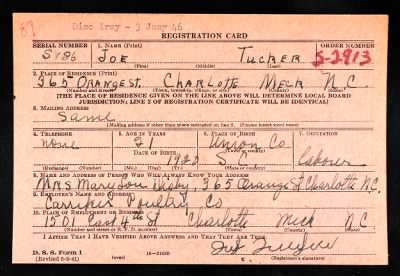 87
Disc Army - 3 Jany 46
REGISTRATION CARD
SERIAL NUMBER 1. NAME (Print) ORDER NUMBER
S186 Joe Tucker S-2913
(First) (Middle) (Last)
2. PLACE OF RESIDENCE (Print)
365 Orange St. Charlotte Meck N.C.
(Number and street) (Town, township, village, or city) (County) (State)
[THE PLACE OF RESIDENCE GIVEN ON THE LINE ABOVE WILL DETERMINE LOCAL BOARD
JURISDICTION; LINE 2 OF REGISTRATION CERTIFICATE WILL BE IDENTICAL]
3. MAILING ADDRESS
Same
[Mailing address if other than place indicated on line 2. If same, insert word same]
4. TELEPHONE 5. AGE IN YEARS 6. PLACE OF BIRTH 7. OCCUPATION
none 21 Union Co
DATE OF BIRTH
1920 S.C. Laborer
(Exchange) (Number) (Mo.) (Day) (Yr.) (State or country)
8. NAME AND ADDRESS OF PERSON WHO WILL ALWAYS KNOW YOUR ADDRESS
Mrs Mary Lou 365 Orange St Charlotte N.C.
9. EMPLOYER'S NAME AND ADDRESS
Carriker Poultry Co
10. PLACE OF EMPLOYMENT OR BUSINESS
1501 East 4th St Charlotte Meck N.C.
(Number and street or R. F. D. number) (Town) (County) (State)
I AFFIRM THAT I HAVE VERIFIED ABOVE ANSWERS AND THAT THEY ARE TRUE.
D. S. S. Form 1
16-21630